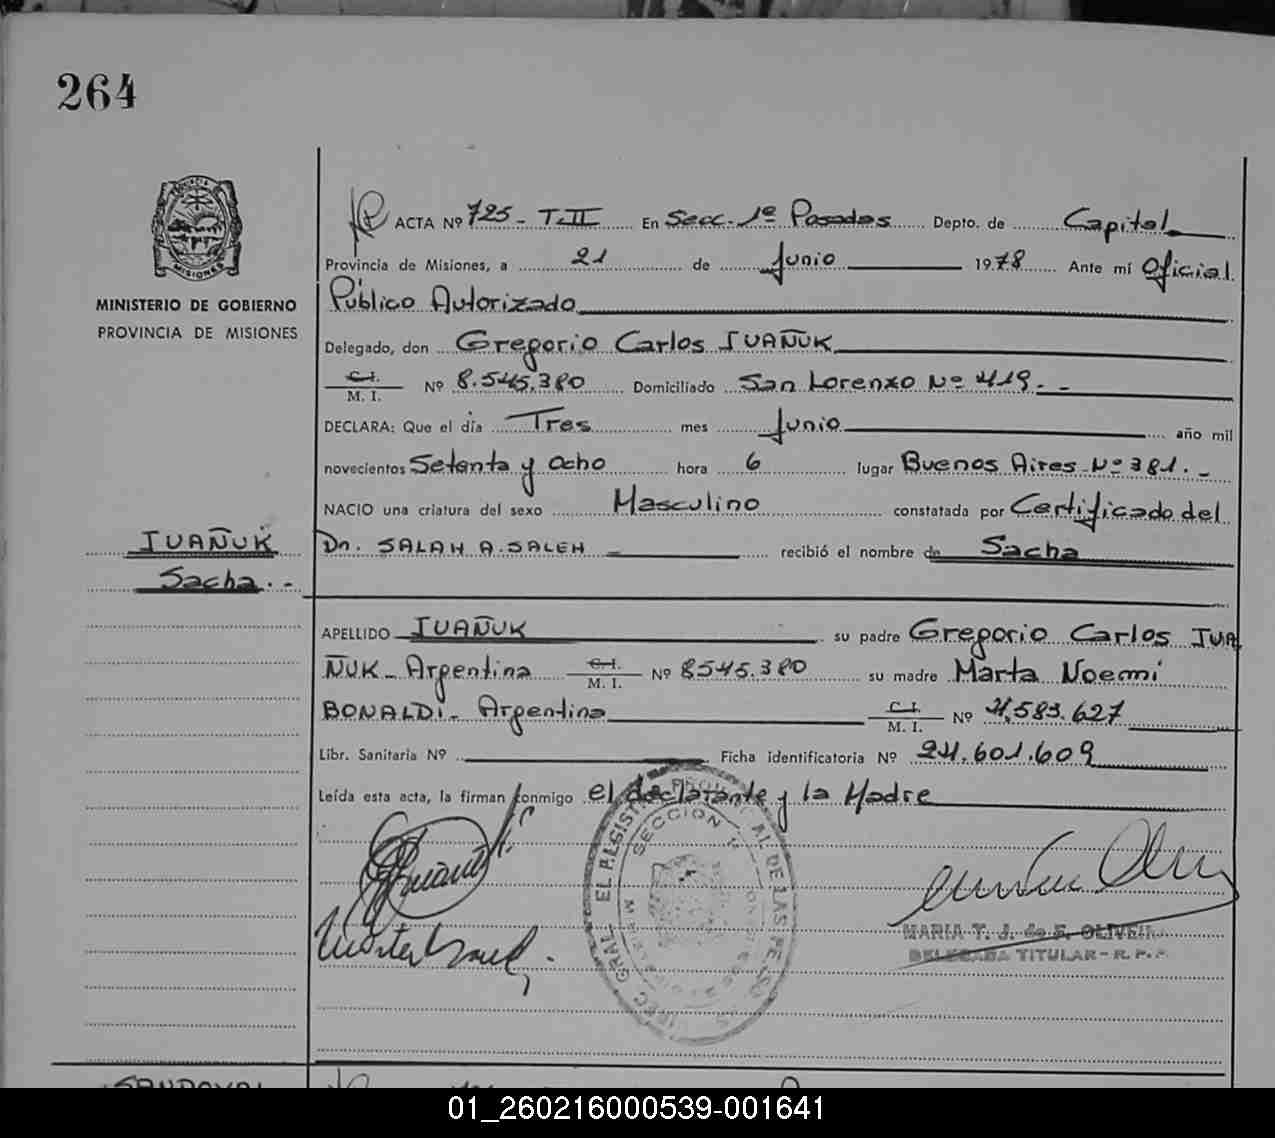 264
MINISTERIO DE GOBIERNO
PROVINCIA DE MISIONES
IUAÑUK
Sacha.-
ACTA Nº 725 - T.II En Secc. 1ª Posadas Depto. de Capital
Provincia de Misiones, a 21 de Junio 1978 Ante mí Oficial
Público Autorizado
Delegado, don Gregorio Carlos IUAÑUK
C.I. M. I. Nº 8.545.380 Domiciliado San Lorenzo Nº 419.-
DECLARA: Que el día Tres mes Junio año mil
novecientos Setenta y Ocho hora 6 lugar Buenos Aires Nº 381.-
NACIO una criatura del sexo Masculino constatada por Certificado del
Dr. SALAH A. SALEH recibió el nombre de Sacha
APELLIDO IUAÑUK su padre Gregorio Carlos IUA
ÑUK - Argentina C.I. M. I. Nº 8545.380 su madre Marta Noemi
BONALDI - Argentina C.I. M. I. Nº 4.583.627
Libr. Sanitaria Nº Ficha identificatoria Nº 24.601.609
Leída esta acta, la firman conmigo el declarante y la Madre
SECCION 1ª
MARIA T. J. de OLIVEIRA
DELEGADA TITULAR - R. P. P.
SANDOVAL
01_260216000539-001641